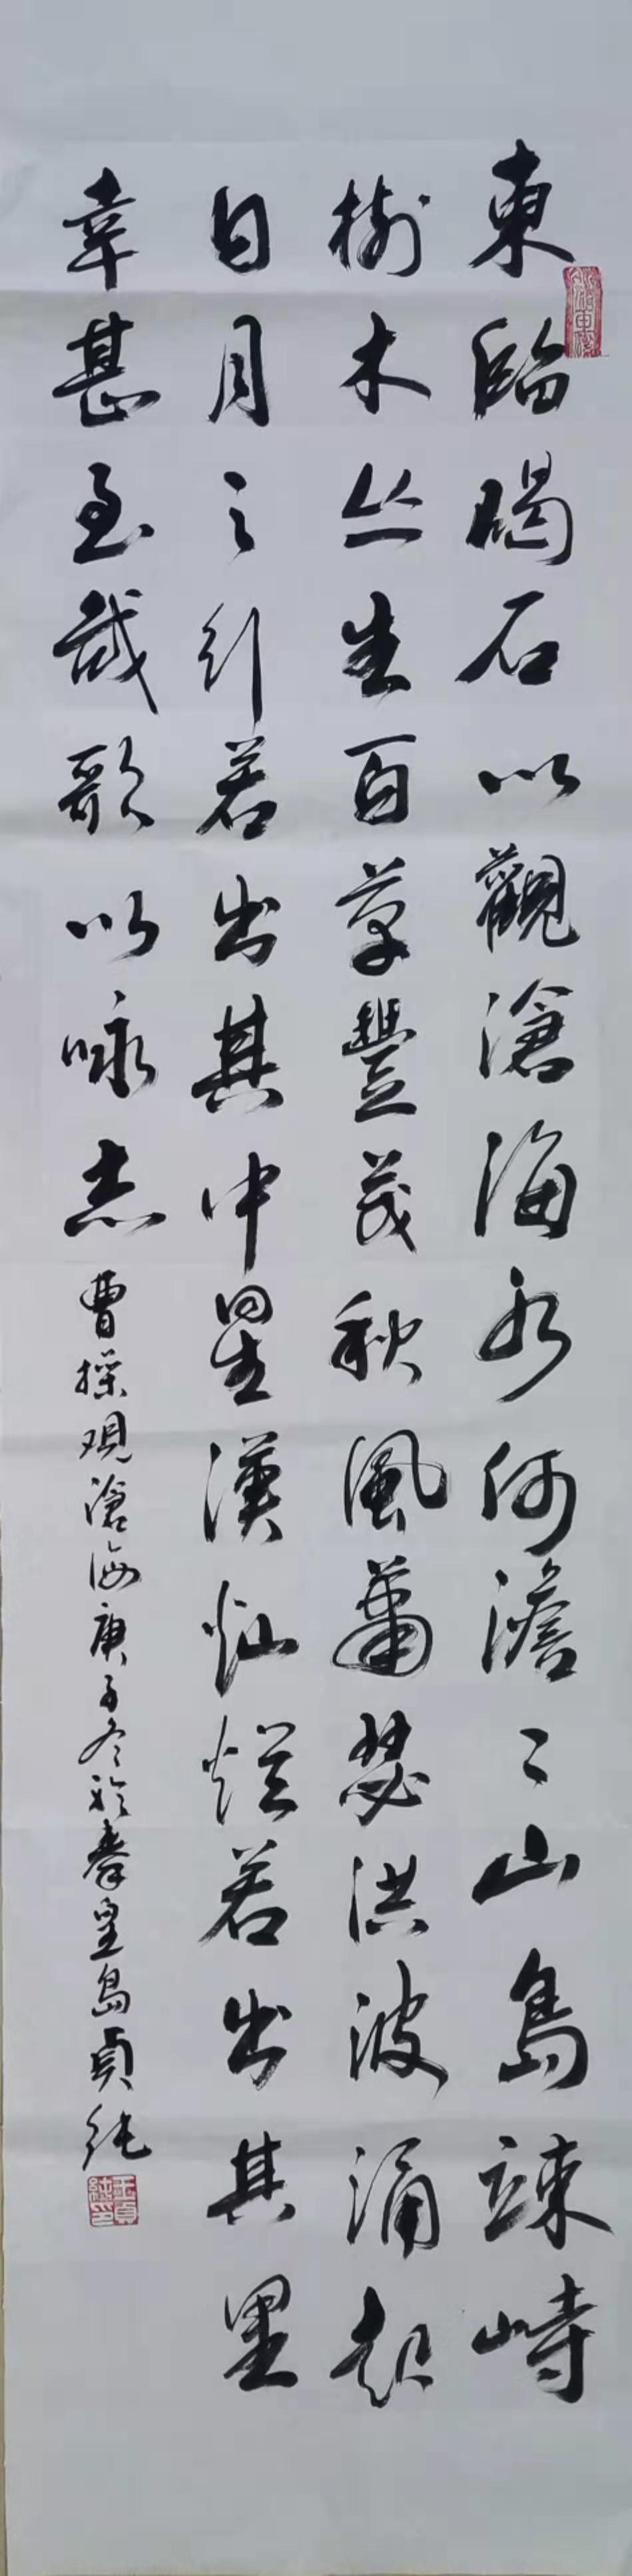 東臨碣石以觀滄海水何澹〻山島竦峙
樹木丛生百草豐茂秋風蕭瑟洪波涌起
日月之行若出其中星漢灿烂若出其里
幸甚至哉歌以咏志
曹操观滄海庚子冬於秦皇島貞純
王貞純印